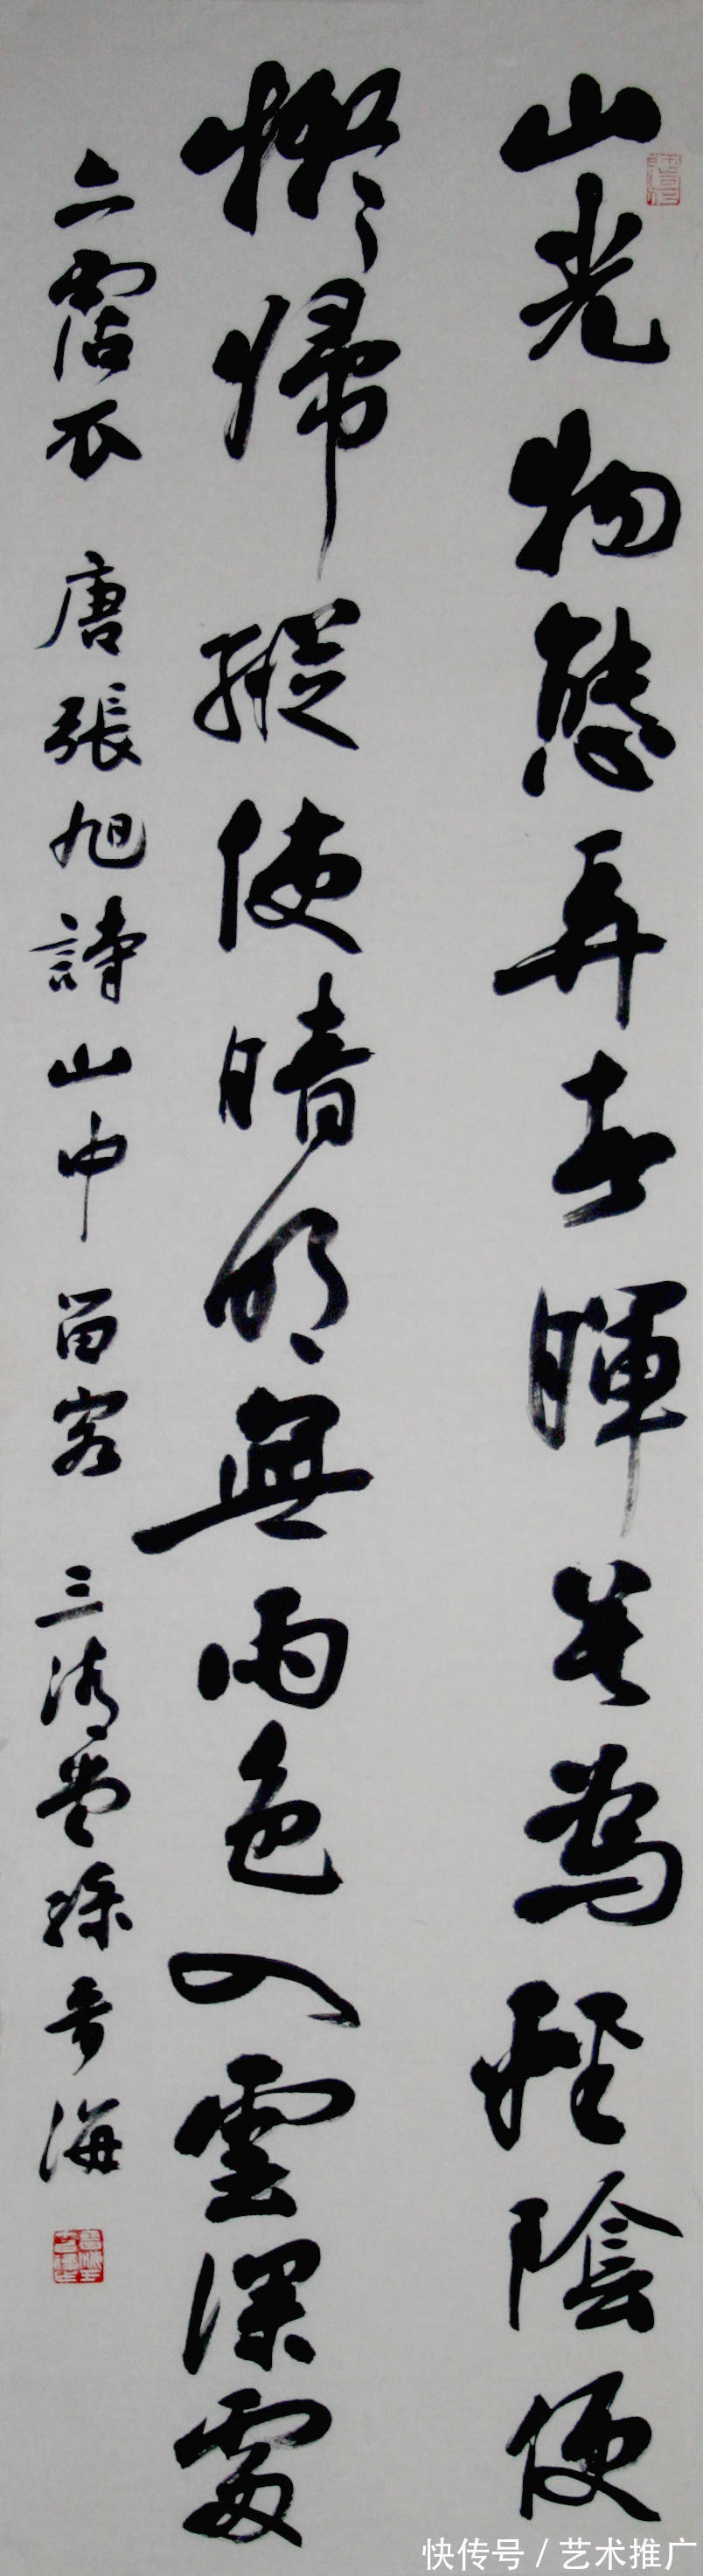 山光物態弄春暉莫為輕陰便
擬歸縱使晴明無雨色入雲深處
亦霑衣 唐張旭詩山中留客 三清堂海
快传号 / 艺术推广